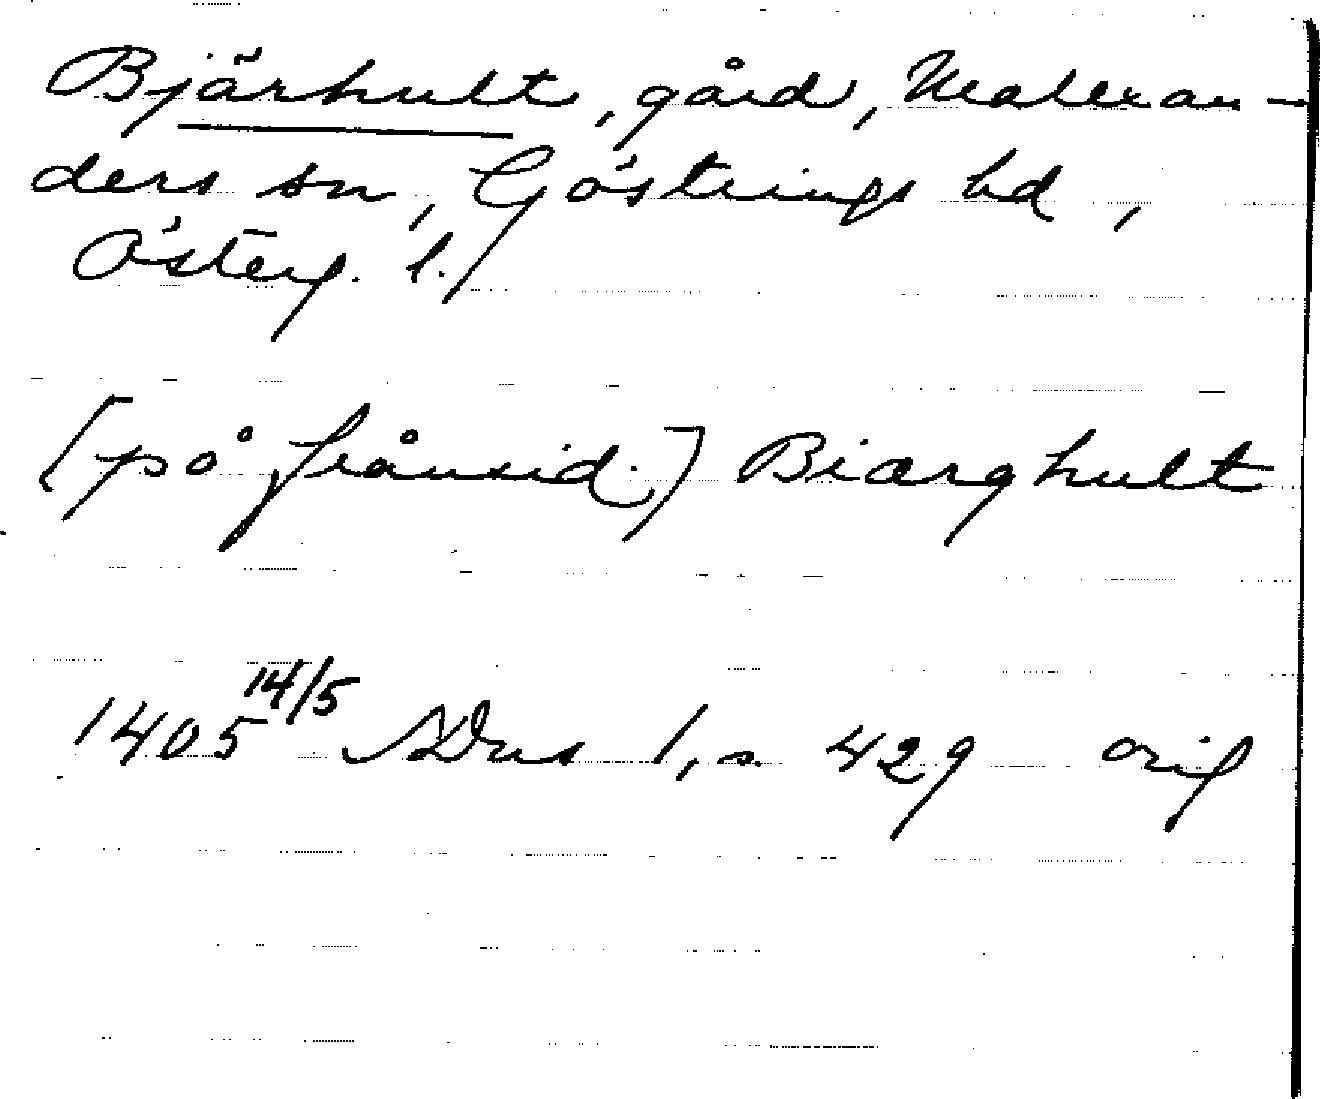 Bjärhult, gård, Malexan-
ders sn, Göstrings hd,
Österg. l.
[på frånsid.] Biærghult
1405 14/5 SDns 1, s. 429 orig